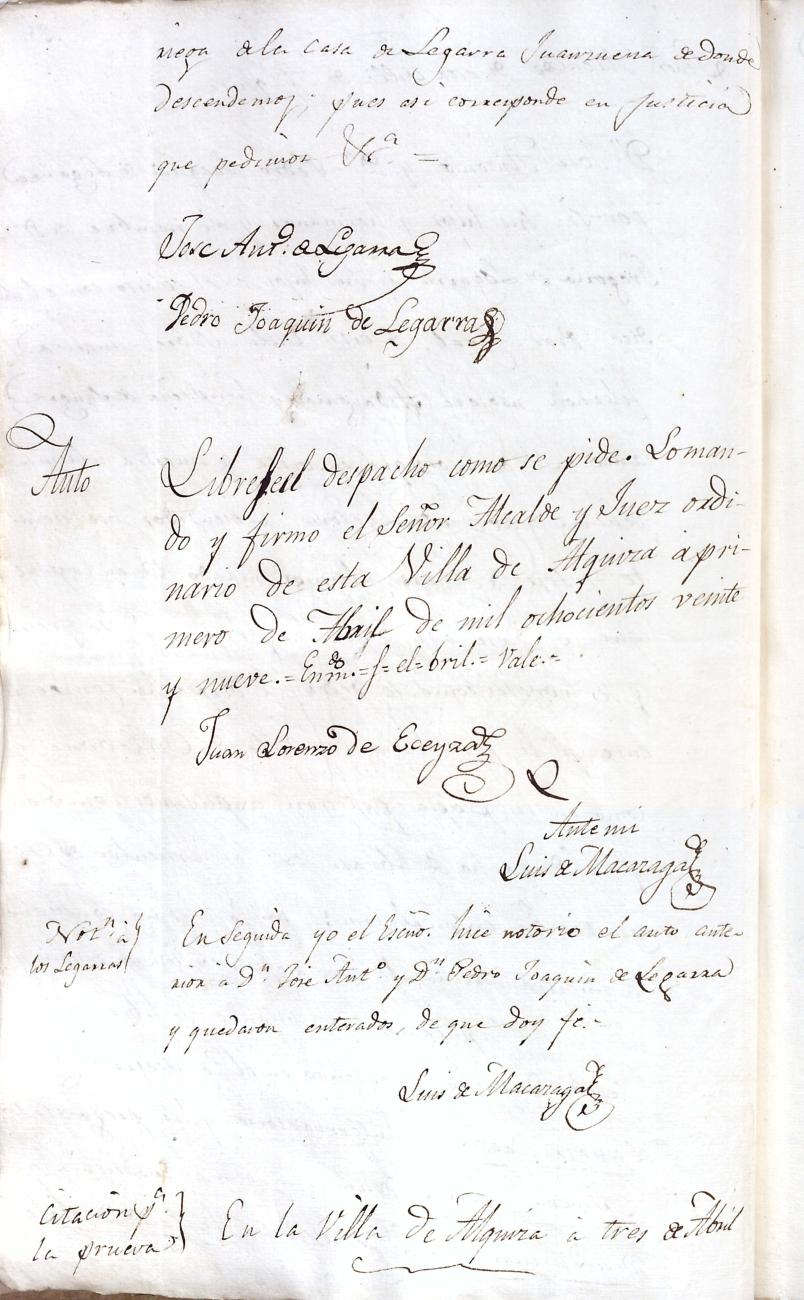 nega dela Casa de Legarra Juanzuena de donde
descendemos; pues asi corresponde en justicia
que pedimos &ra =
Jose Anto. de Legarra
Pedro Joaquin de Legarra
Auto
Librese el despacho como se pide. Loman-
do y firmo el Señor Alcalde y Juez ordi-
nario de esta Villa de Alquiza a pri-
mero de Abril de mil ochocientos veinte
y nueve.= Enmdo.= s= el= bril.= Vale.=
Juan Lorenzo de Eceyza
Ante mi
Luis de Macazaga
Notn. à
los Legarras
En seguida yo el Escño. hice notorio el auto ante-
rior à Dn. José Anto. y Dn. Pedro Joaquin de Legarra
y quedaron enterados, de que doy fe.=
Luis de Macazaga
Citacion pa.
la prueva
En la Villa de Alquiza à tres de Abril